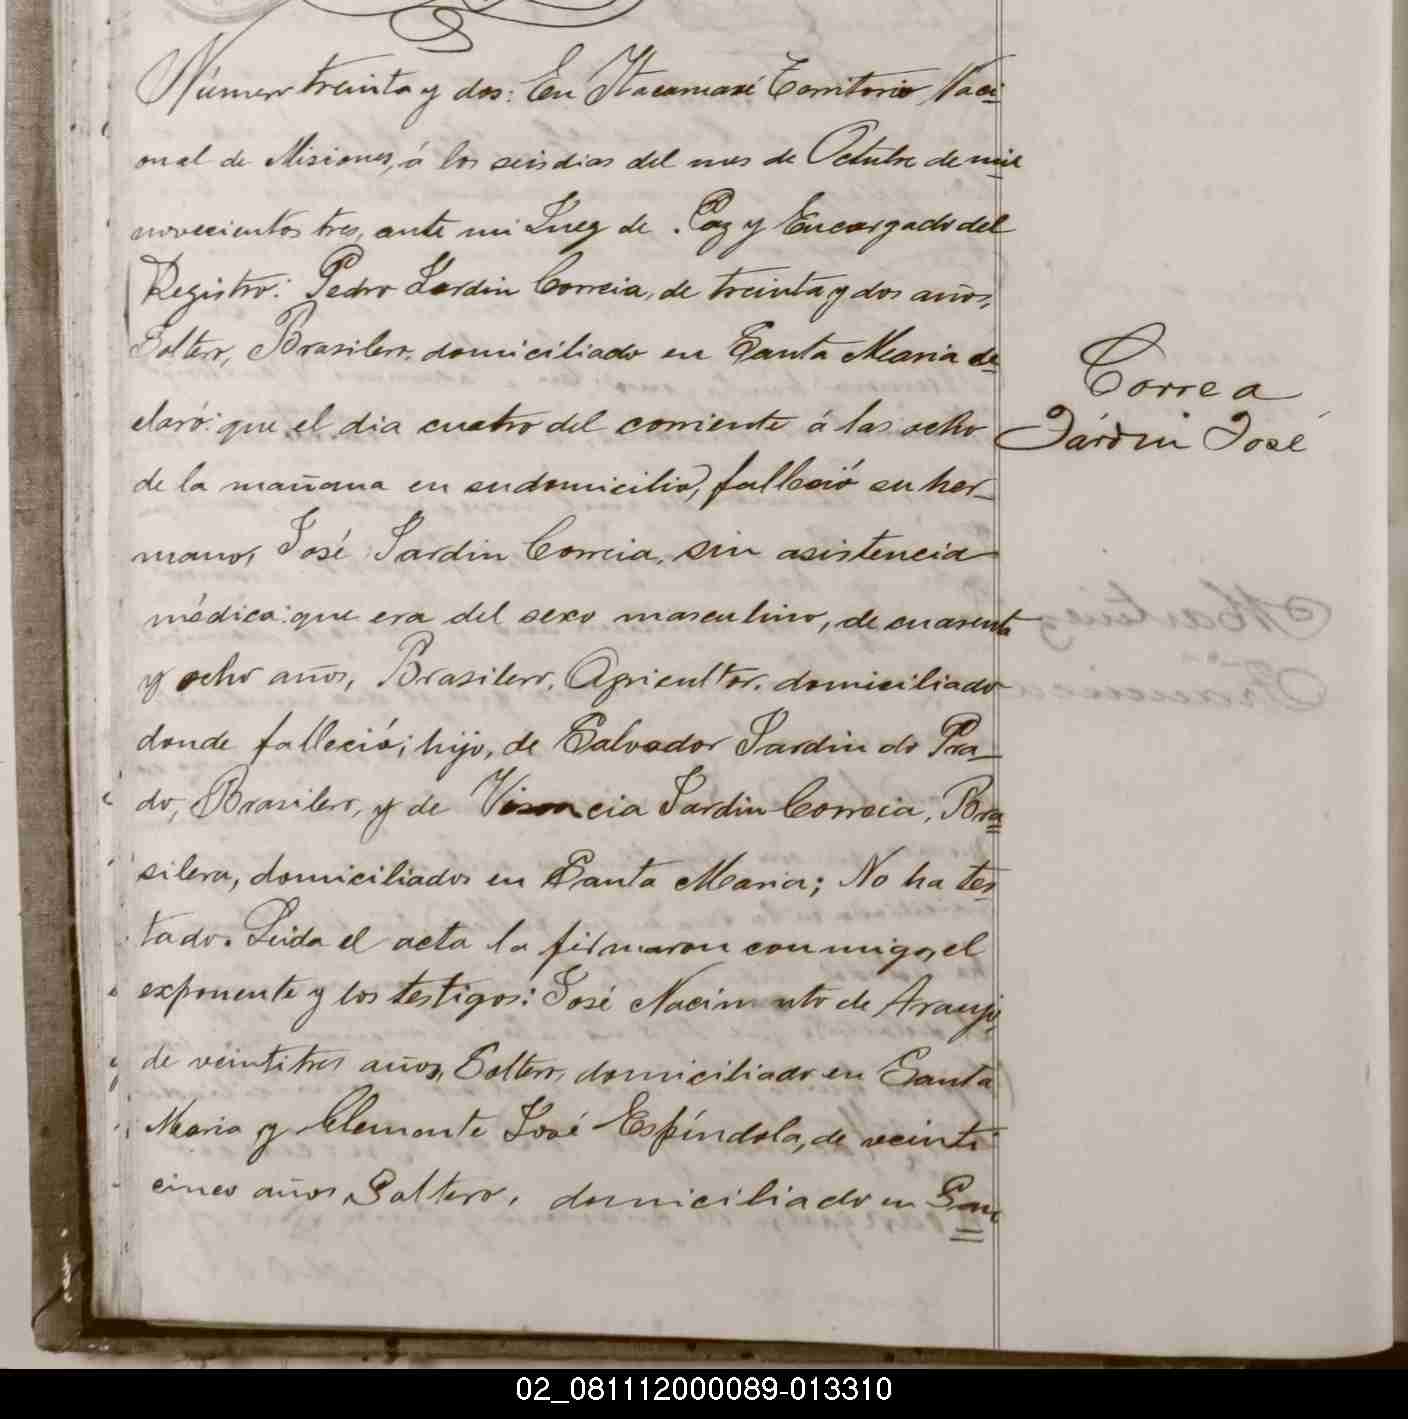 Número treinta y dos: En Itacaruaré Territorio Naci-
onal de Misiones, á los seis dias del mes de Octubre de mil
novecientos tres, ante mi Juez de Paz y Encargado del
Registro: Pedro Jardin Correia, de treinta y dos años,
Soltero, Brasilero, domiciliado en Santa Maria de-
claró: que el dia cuatro del corriente á las ocho
de la mañana en su domicilio, falleció su her-
mano, José Jardin Correia, sin asistencia
médica: que era del sexo masculino, de cuarenta
y ocho años, Brasilero, Agricultor, domiciliado
donde falleció; hijo, de Salvador Jardin do Pra-
do, Brasilero, y de Jardin Correia, Bra-
silera, domiciliados en Santa Maria; No ha tes-
tado. Leida el acta la firmaron conmigo, el
exponente y los testigos: José Nacimento de Araujo,
de veintitres años, Soltero, domiciliado en Santa
Maria y Clemente José Espíndola, de veinti
cinco años, Soltero, domiciliado en San=
Correa
Járdin José
02_081112000089-013310